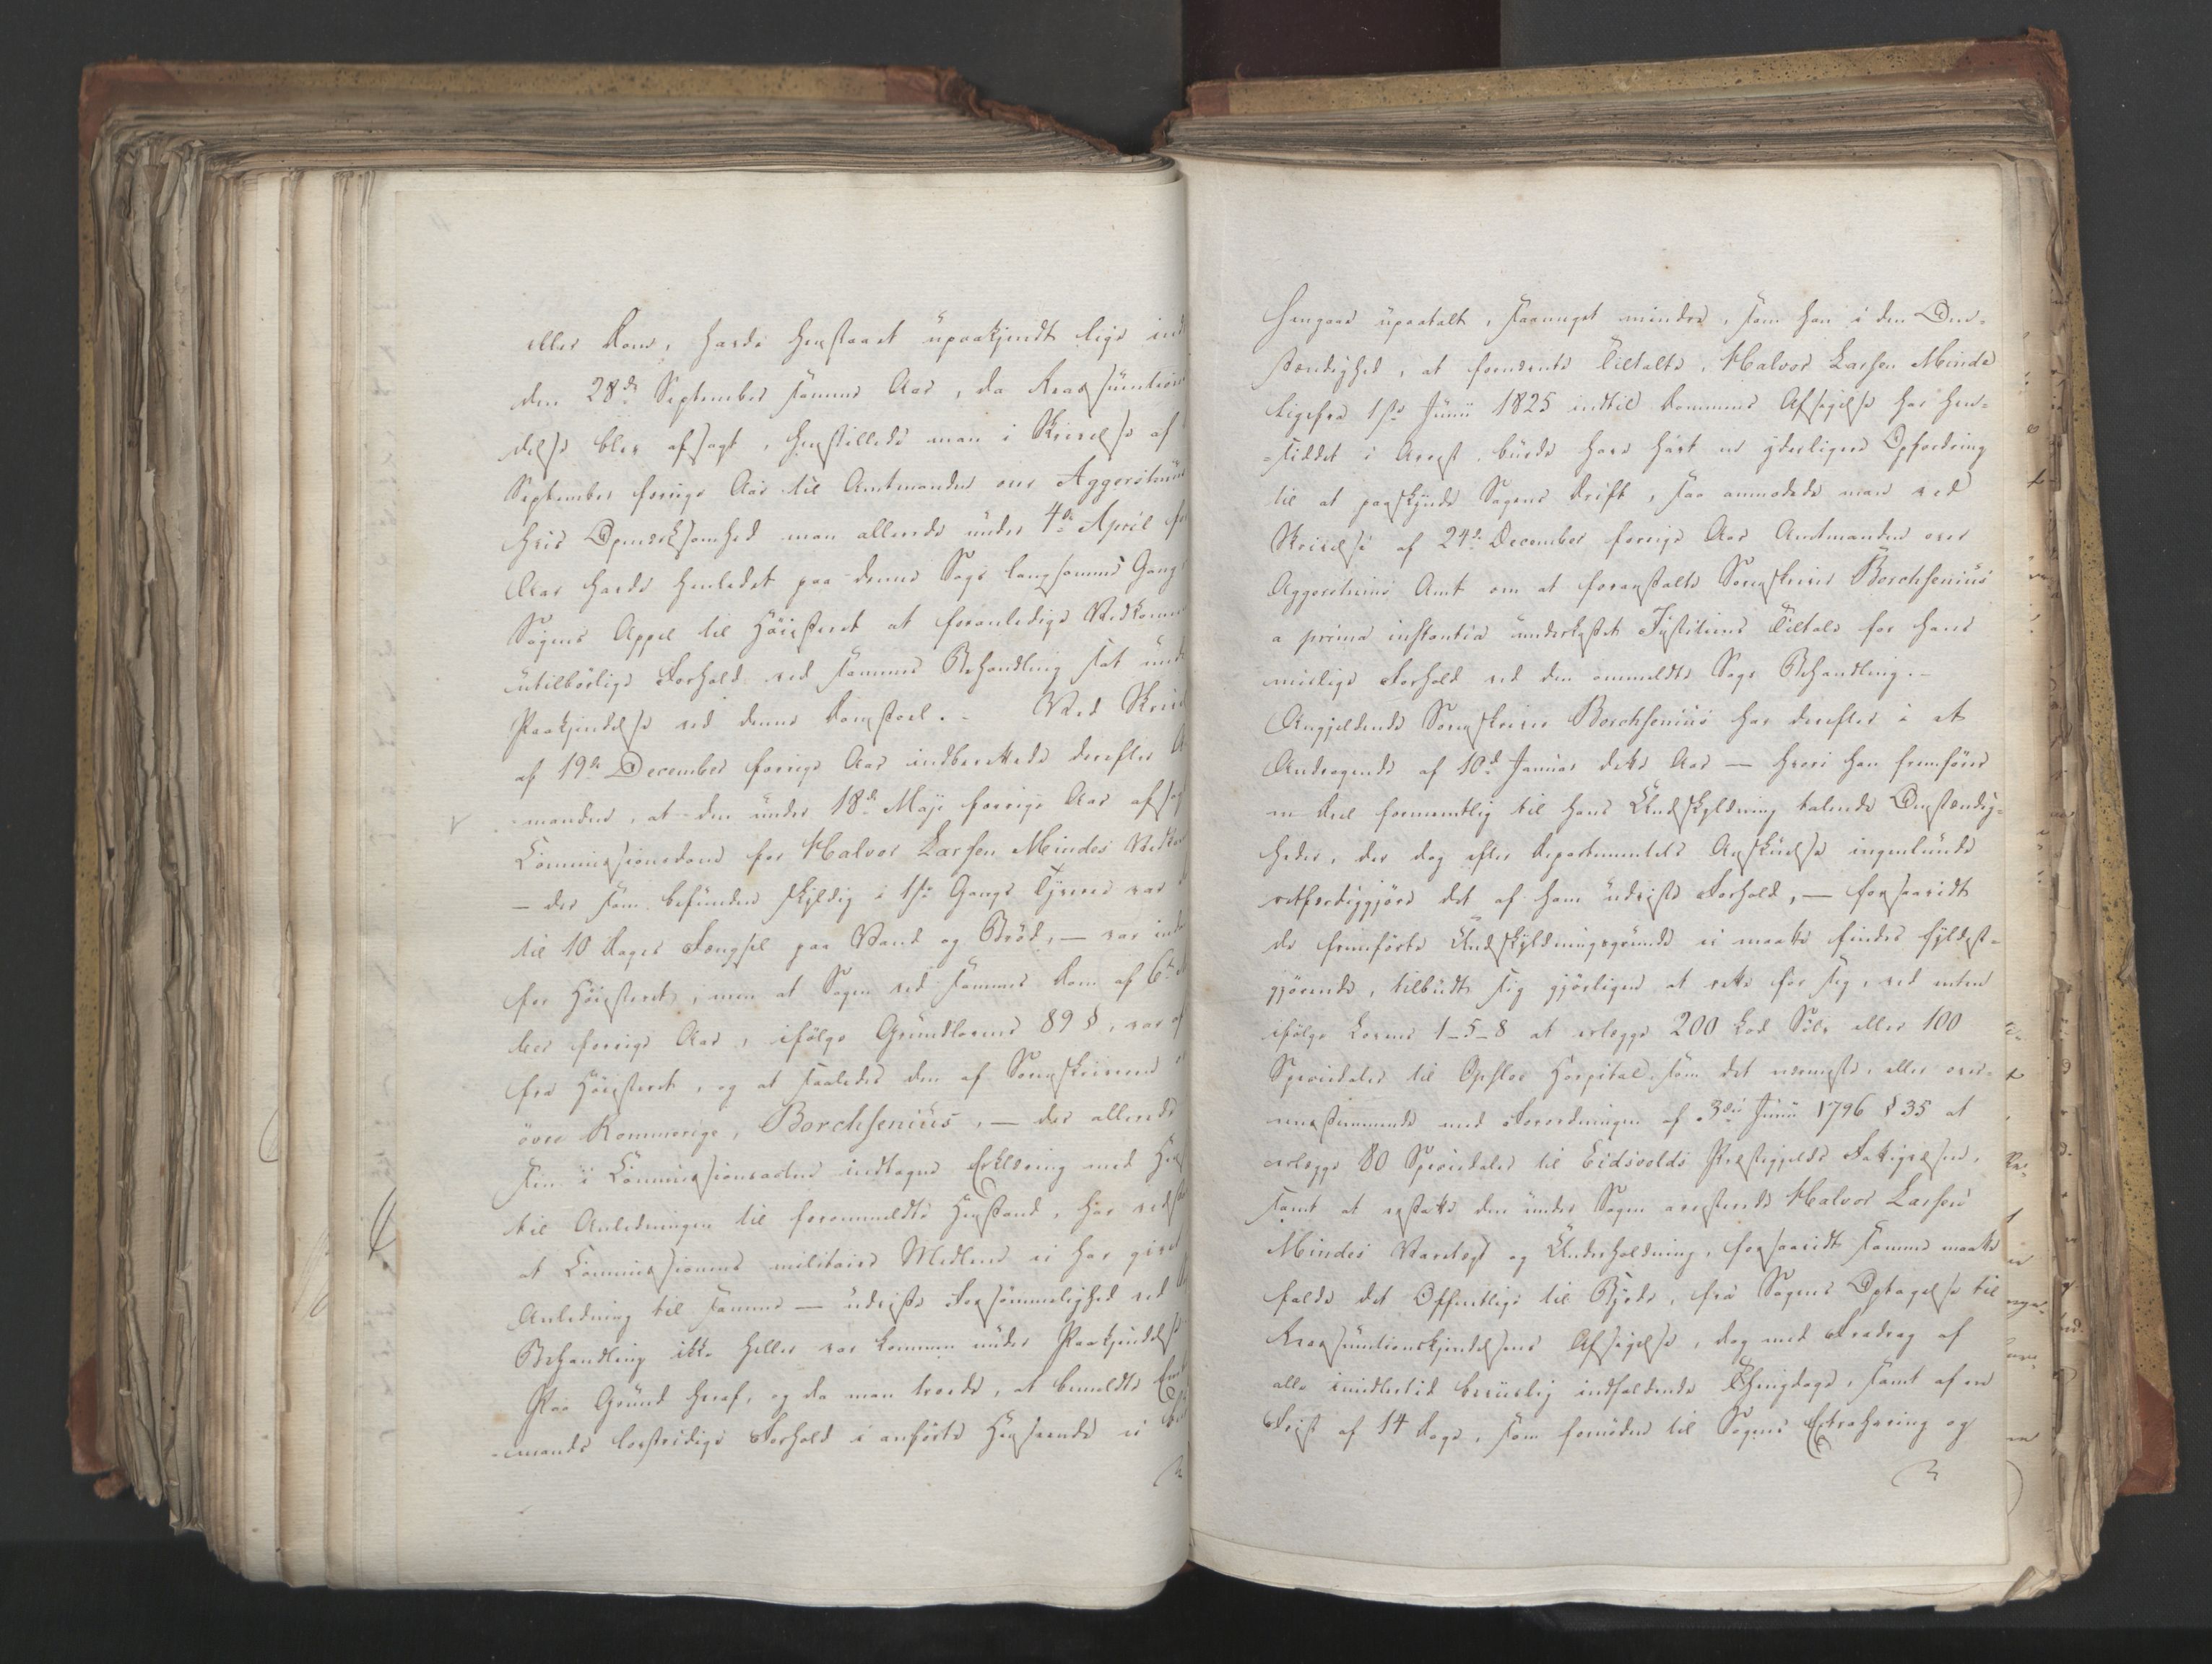 eller Dom, havde henstaaet upaakjendt lige ind
den 28de September samme Aar, da Reassumtions
delse blev afsagt, henstillede man i Skrivelse af
September forrige Aar til Amtmanden over Aggershuus
hvis Opmærksomhed man allerede under 4de April for
Aar havde henledet paa denne Sags langsomme Gang
Sagens Appel til Höiesteret at foranledige Vedkomm
utilbörlige Forhold ved sammes Behandling sat unde
Paakjendelse ved denne Domstoel. - Ved Skriv
af 19de December forrige Aar indberettede derefter A
manden, at den under 18de Maji forrige Aar afsag
Commissionsdom for Halvor Larsen Mindes Vedkom
- der som befunden skyldig i 1ste Gangs Tyverie var
til 10 Dages Fængsel paa Vand og Bröd, - var inds
for Höiesteret, men at Sagen ved sammes Dom af 6te
ber forrige Aar, ifölge Grundlovens 89 §, var af
fra Höiesteret, og at saaledes den af Sorenskriveren
övre Rommerige, Borchsenius, - der allerede
sin i Commissionsacten indtagne Erklæring med Hen
til Anledningen til forommeldte Henstand, har vedst
at Commissionens militaire Medlem ei har givet
Anledning til samme - udviste Forsömmelighed ved
Behandling ikke heller var kommen under Paakjendelse
Paa Grund heraf, og da man troede, at bemeldte Em
mands lovstridige Forhold i anförte Henseende ei bu
hengaae upaatalt, saameget mindre, som han i den Om-
stændighed, at fornævnte Tiltalte, Halvor Larsen Minde
ligefra 1ste Junii 1825 indtil Dommens Afsigelse har hen-
siddet i Arrest, burde have havt en yderligere Opfordring
til at paaskynde Sagens Drift, saa anmodede man ved
Skrivelse af 24de December forrige Aar Amtmanden over
Aggershuus Amt om at foranstalte Sorenskriver Borchsenius
a prima instantia underkastet Justitiens Tiltale for hans
Forhold ved den ommeldte Sags Behandling. -
Angjeldende Sorenskriver Borchsenius har derefter i et
Andragende af 10de Januar dette Aar - hvori han fremförer
en Deel formeentlig til hans Undskyldning talende Omstændig-
heder, der dog efter Departementets Anskuelse ingenlunde
retfærdiggjöre det af ham udviste Forhold, - forsaavidt
de fremförte Undskyldningsgrunde ei maatte findes fyldest-
gjörende, tilbudt sig gjörligen at rette for sig, ved enten
ifölge Lovens 1-5-8 at erlægge 200 Lod Sölv eller 100
Speciedaler til Opsloe Hospital, som det nærmeste, eller over-
eensstemmende med Forordningen af 3die Junii 1796 § 35 at
erlægge 80 Speciedaler til Eidsvolds Præstegjelds Fattigvæsen,
samt at erstatte den under Sagen arresterede Halvor Larsen
Mindes Varetægt og Underholdning, forsaavidt samme maatte
falde det Offentlige til Byrde, fra Sagens Optagelse til
Reassumtionskjendelsens Afsigelse, dog med Fradrag af
alle imidlertid beviislig indfaldende Thingdage, samt af en
Frist af 14 Dage, som fornöden til Sagens Extrahering og